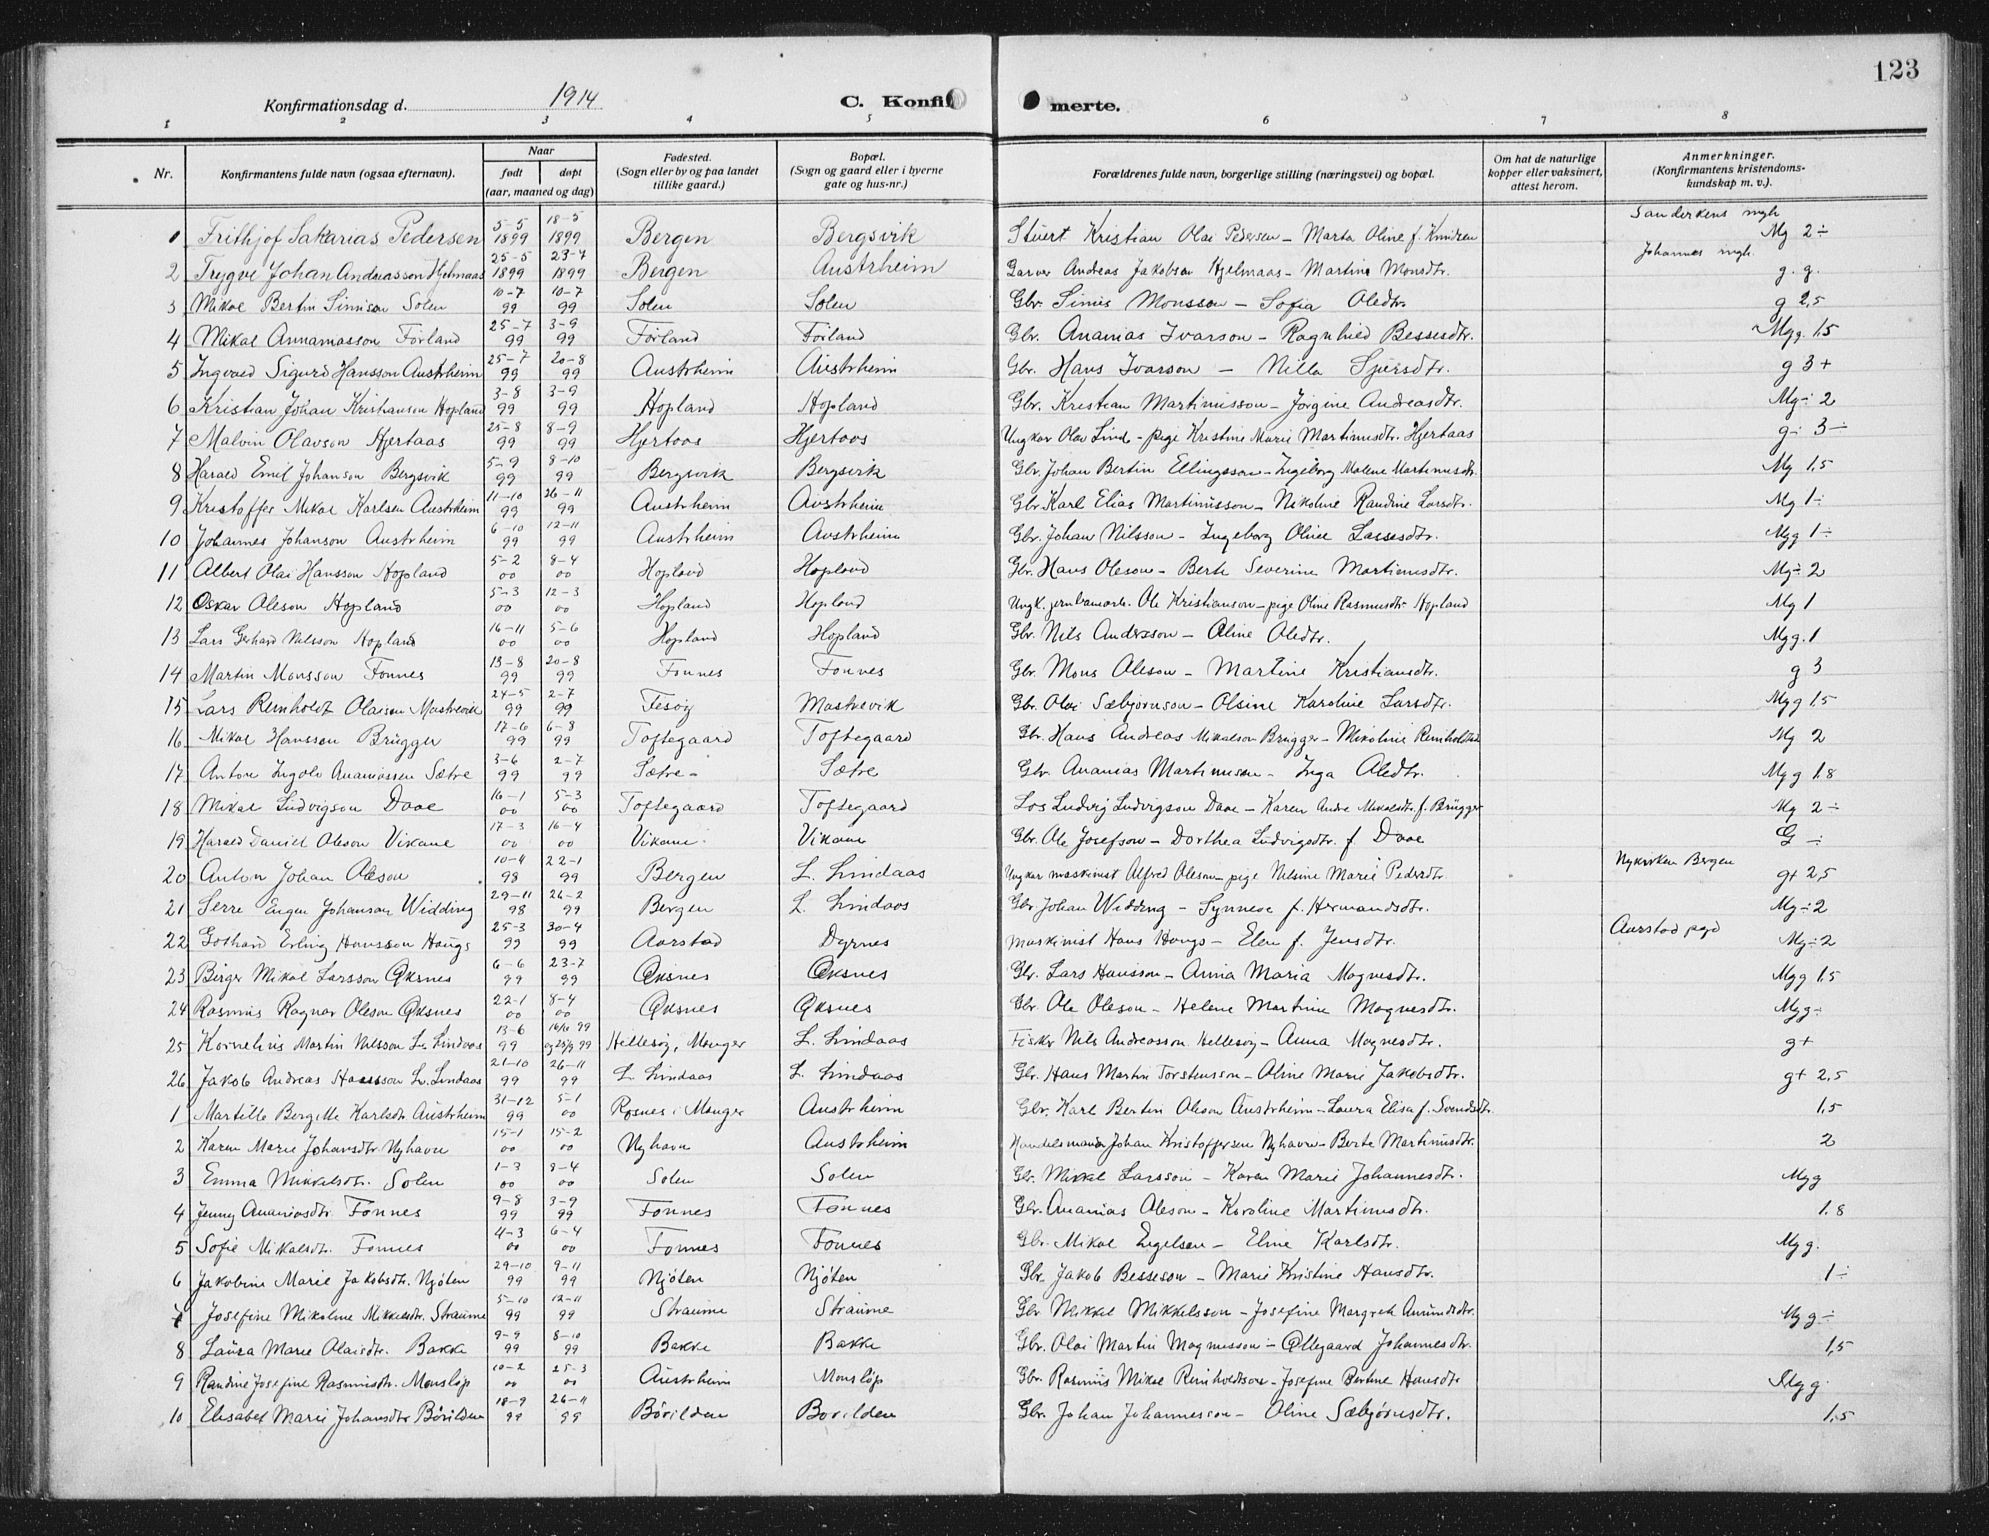 123
Konfirmationsdag d. 1914 C. Konfir merte.
1 2 3 4 5 6 7 8
Nr. Konfirmantens fulde navn (ogsaa efternavn). Naar født døpt (aar, maaned og dag) Fødested. (Sogn eller by og paa landet tillike gaard.) Bopæl. (Sogn og gaard eller i byerne gate og hus-nr.) Forældrenes fulde navn, borgerlige stilling (næringsvei) og bopæl. Om hat de naturlige kopper eller vaksinert, attest herom. Anmerkninger. (Konfirmantens kristendoms-kundskap m. v.).
1 Frithjof Sakarias Pedersen 5-5 1899 18-5 1899 Bergen Bergsvik Stuert Kristian Olai Pedersen - Marta Oline f. Knudsen Sanderkens mgh Mg 2÷
2 Trygve Johan Andreasson Hjelmaas 25-5 1899 23-7 1899 Bergen Austrheim Garver Andreas Jakobsen Hjelmaas - Martine Monsdtr. Johannes mgh. g. g.
3 Mikal Bertin Simison Solen 10-7 99 10-7 99 Solen Solen Gbr. Simis Monsson - Sofia Oledtr. g 2,5
4 Mikal Annaniasson Førland 25-7 99 3-9 99 Førland Førland Gbr. Ananias Ivarson - Ragnhild Bessesdtr. Mgg. 1.5
5 Ingvald Sigurd Hansson Austrheim 25-7 99 20-8 99 Austrheim Austrheim Gbr. Hans Ivarson - Nilla Sjursdtr. g 3+
6 Kristian Johan Kristianson Hopland 3-8 99 3-9 99 Hopland Hopland Gbr. Kristian Martinusson - Jørgine Andreasdtr. Mg÷ 2
7 Malvin Olavson Hjertaas 25-8 99 8-9 99 Hjertaas Hjertaas Ungkar Olav Lind - pige Kristine Marie Martinusdtr. Hjertaas g÷ 3÷
8 Harald Emil Johanson Bergsvik 5-9 99 8-10 99 Bergsvik Bergsvik Gbr. Johan Bertin Ellingsson - Ingeborg Malene Martinusdtr. Mg 1,5
9 Kristoffer Mikal Karlsen Austrheim 11-10 99 26-11 99 Austrheim Austrheim Gbr. Karl Elias Martinusson - Nikoline Randine Larsdtr. Mg 1÷
10 Johannes Johanson Austrheim 6-10 99 12-11 99 Austrheim Austrheim Gbr. Johan Nilsson - Ingeborg Oline Lassesdtr. Mgg 1÷
11 Albert Olai Hansson Hopland 5-2 00 8-4 00 Hopland Hopland Gbr. Hans Oleson - Berte Severine Martinusdtr. Mg÷ 2
12 Oskar Oleson Hopland 5-3 00 12-3 00 Hopland Hopland Ungk. jernbanearb. Ole Kristianson - pige Oline Rasmusdtr Hopland Mg 1
13 Lars Gerhard Nilsson Hopland 16-11 00 5-6 00 Hopland Hopland Gbr. Nils Andersson - Oline Oledtr. Mgg. 1
14 Martin Monsson Fonnes 13-8 99 20-8 99 Fonnes Fonnes Gbr. Mons Oleson - Martine Kristiansdtr. g 3
15 Lars Reinholdt Olaison Mastrevik 24-5 99 2-7 99 Fesøy Mastrevik Gbr. Olai Sæbjørnson - Olsine Karoline Larsdtr. Mgg 1,5
16 Mikal Hansson Brügger 17-6 99 6-8 99 Toftegaard Toftegaard Gbr. Hans Andreas Mikalson Brügger - Mikoline Reinholdtsd Mg 2
17 Anton Ingolv Ananiassen Sætre 3-6 99 2-7 99 Sætre - Sætre Gbr. Ananias Martinusen - Inga Oledtr. Mgg 1.8
18 Mikal Ludvigson Daae 16-1 00 5-3 00 Toftegaard Toftegaard Los Ludvig Ludvigson Daae - Karen Andre Mikalsdtr. f. Brügger Mg 2÷
19 Harald Daniel Oleson Vikane 17-3 00 16-4 00 Vikane Vikane Gbr. Ole Josefson - Dorthea Ludvigsdtr. f. Daae G ÷
20 Anton Johan Oleson 10-4 98 22-1 99 Bergen L. Lindaas Ungkar maskinist Alfred Oleson - pige Nilsine Marie Pedersdtr Nykirken Bergen g+ 2,5
21 Serre Eugen Johanson Widding 29-11 98 26-2 99 Bergen L. Lindaas Gbr. Johan Widding - Synneve f. Hermandsdtr. Mg÷2
22 Gothard Erling Hansson Haugs 25-3 99 30-4 99 Aarstad Dyrnes Maskinist Hans Haugs - Elen f. Jensdtr. Aarstad pgd Mg÷2
23 Birger Mikal Larsson Øksnes 6-6 99 23-7 99 Øksnes Øksnes Gbr. Lars Hansson - Anna Maria Magnesdtr. Mgg 1,5
24 Rasmus Ragnar Oleson Øksnes 22-1 00 8-4 00 Øksnes Øksnes Gbr. Ole Oleson - Helene Martine Magnesdtr. Mgg÷
25 Kornelius Martin Nilsson L. Lindaas 13-6 99 16/6 99 og 25/9 99 Hellesøy, Manger L. Lindaas Fisker Nils Andreasson Hellesøy - Anna Magnesdtr. g+
26 Jakob Andreas Hansson L. Lindaas 21-10 99 26-11 99 L. Lindaas L. Lindaas Gbr. Hans Martin Torstensson - Oline Marie Jakobsdtr. g+ 2,5
1 Martille Bergitte Karlsdtr Austrheim 31-12 99 5-1 00 Rosnes i Manger Austrheim Gbr. Karl Bertin Oleson Austrheim - Laura Elisa f. Svendsdtr. 1,5
2 Karen Marie Johansdtr. Nyhavn 15-1 00 15-2 00 Nyhavn Austrheim Handelsmand Johan Kristoffersen Nyhavn - Berte Martinusdtr. 2
3 Emma Mikkelsdtr. Solen 1-3 00 8-4 00 Solen Solen Gbr. Mikkel Larsson - Karen Marie Johannesdtr. Mgg
4 Jenny Ananiasdtr Fonnes 9-8 99 3-9 99 Fonnes Fonnes Gbr. Ananias Oleson - Karoline Martinusdtr. 1.8
5 Sofie Mikalsdtr. Fonnes 4-3 00 6-4 00 Fonnes Fonnes Gbr. Mikal Engelsen - Eline Karlsdtr. Mgg.
6 Jakobine Marie Jakobsdtr. Njøten 29-10 99 9-11 99 Njøten Njøten Gbr. Jakob Besseson - Marie Kristine Hansdtr. 1÷
7 Josefine Mikoline Mikkelsdtr. Straume 5-10 99 12-11 99 Straume Straume Gbr Mikkel Mikkelsson - Josefine Margrete Amundsdtr. Mgg÷
8 Laura Marie Olaisdtr. Bakke 9-9 99 8-10 99 Bakke Bakke Gbr. Olai Martin Magnusson - Øllegaard Johannesdtr. 1,5
9 Randine Josefine Rasmusdtr. Monsløp 10-2 00 25-3 00 Austrheim Monsløp Gbr. Rasmus Mikal Reinholdtson - Josefine Bertine Hansdtr Mgg.
10 Elisabet Marie Johansdtr Børilden 18-9 99 26-11 99 Børilden Børilden Gbr. Johan Johannesson - Oline Sæbjørnsdtr. 1.5